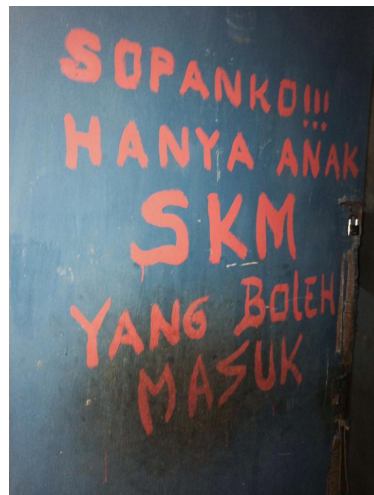 SOPANKO!!!
HANYA ANAK
SKM
YANG BOLEH
MASUK